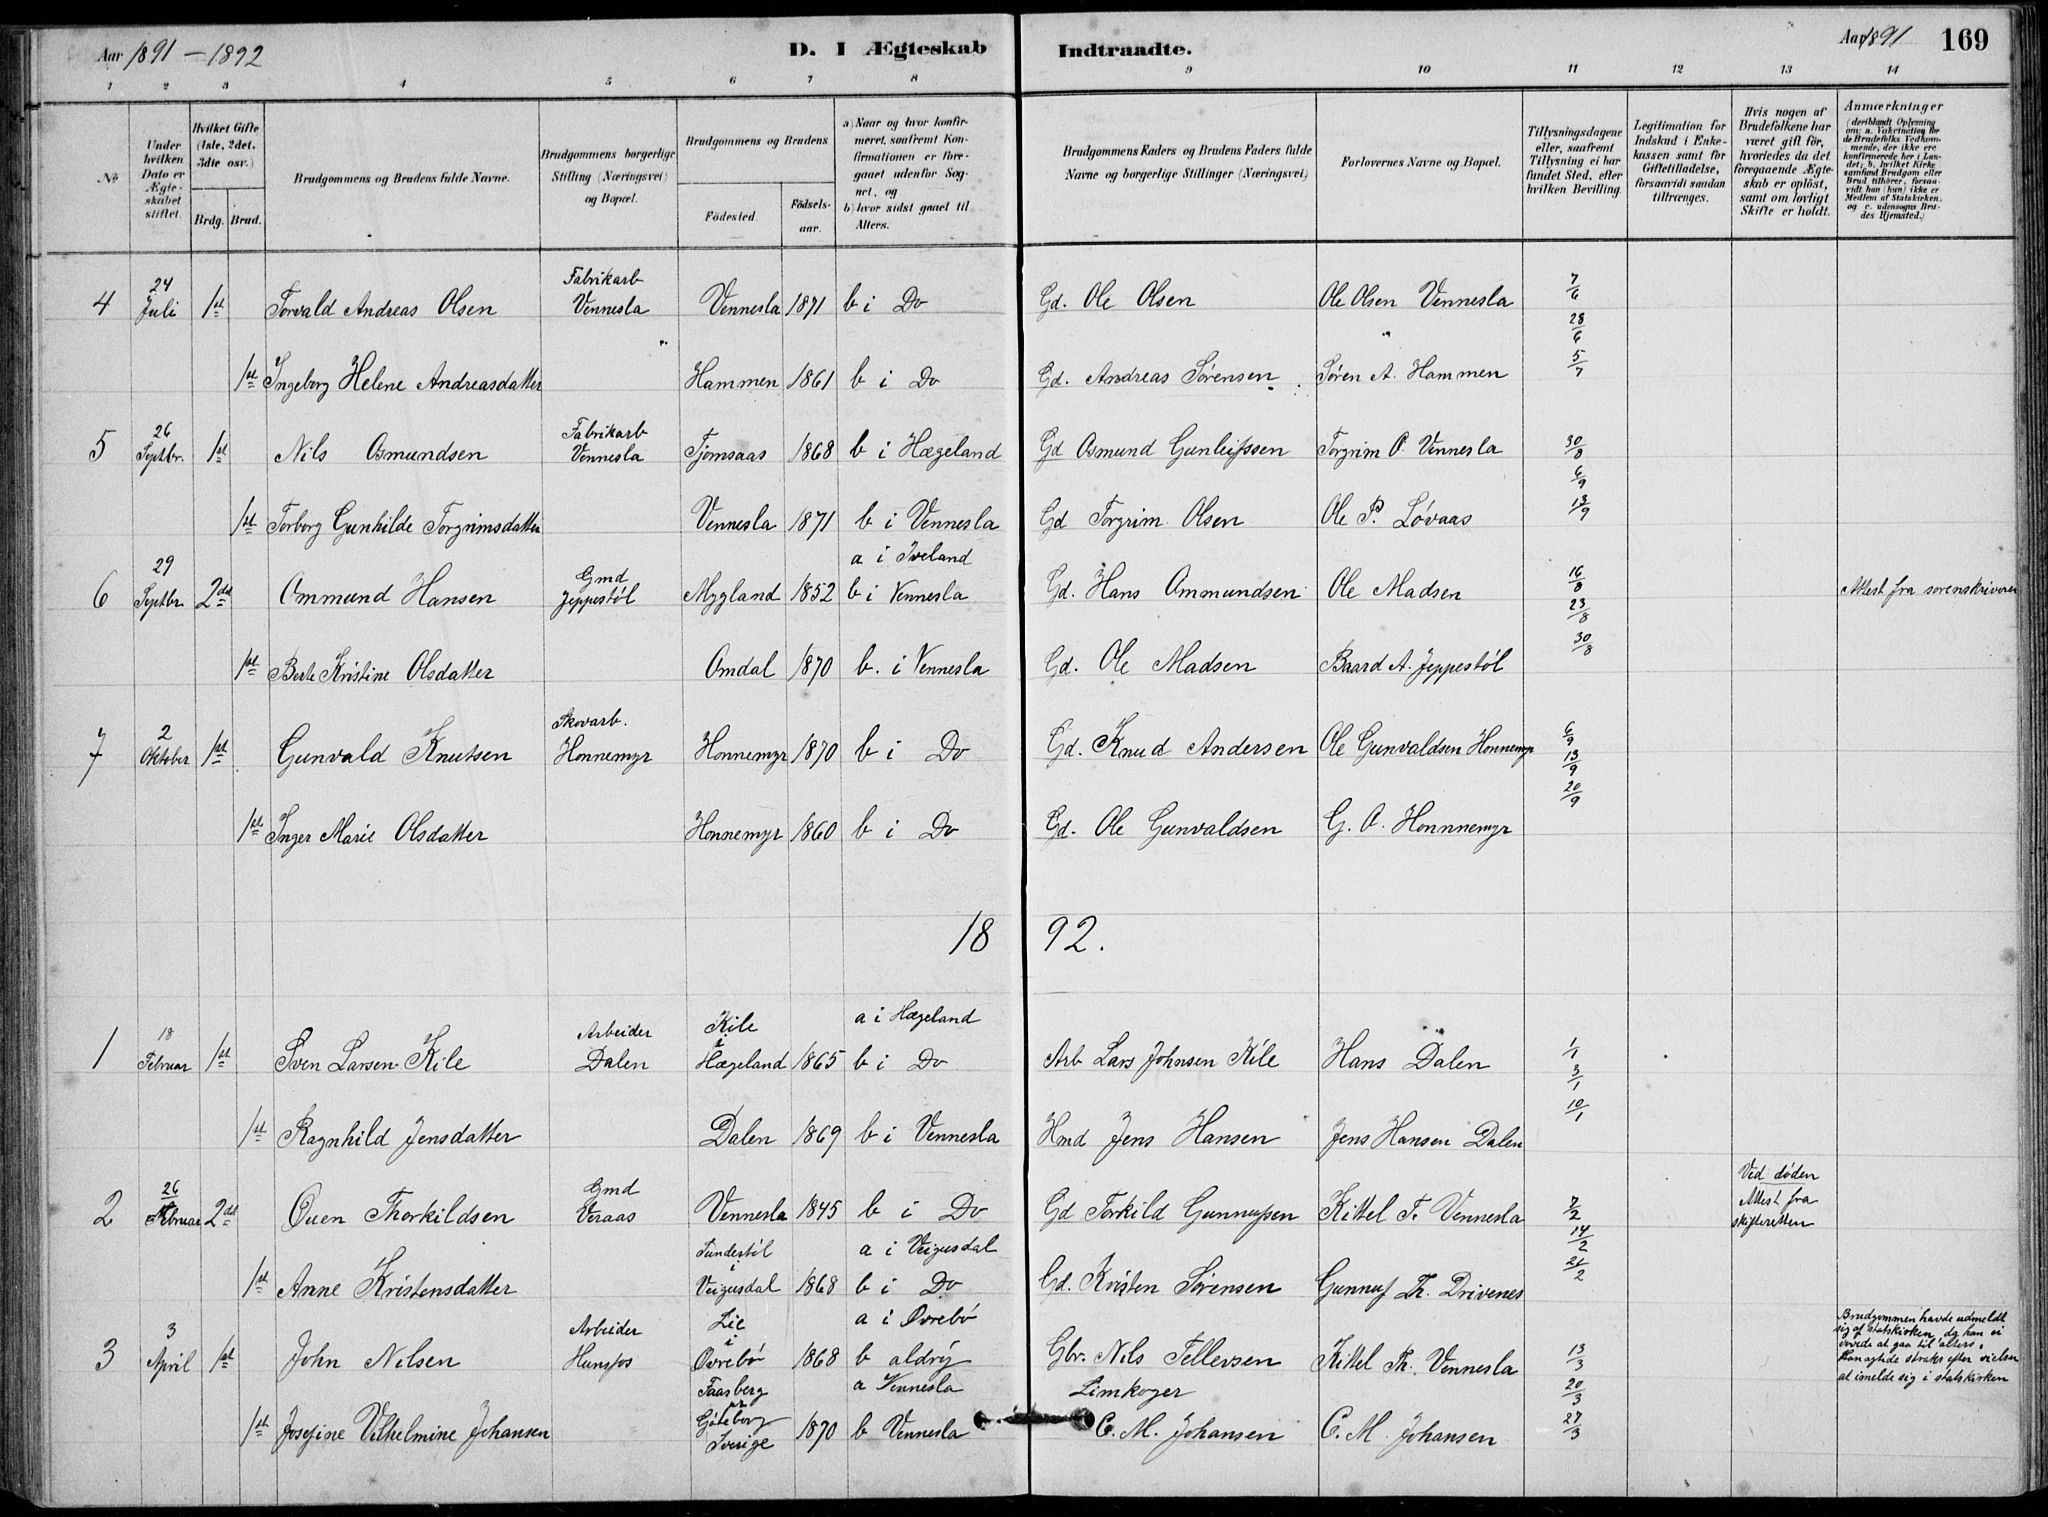 Aar 1891 – 1892
D. I Ægteskab Indtraadte.
Aar 1891 169
1 2 3 4 5 6 7 8 9 10 11 12 13 14
No
Under hvilken Dato er Ægteskabet stiftet.
Hvilket Gifte (1ste, 2det, 3die osv.)
Brdg. Brud.
Brudgommens og Brudens fulde Navne.
Brudgommens borgerlige Stilling (Næringsvei) og Bopæl.
Brudgommens og Brudens
Födested. Födsels-aar.
a) Naar og hvor konfirmeret, saafremt Konfirmationen er foregaaet udenfor Sognet, og
b) hvor sidst gaaet til Alters.
Brudgommens Faders og Brudens Faders fulde Navne og borgerlige Stillinger (Næringsvei)
Forlovernes Navne og Bopæl.
Tillysningsdagene eller, saafremt Tillysning ei har fundet Sted, efter hvilken Bevilling.
Legitimation for Indskud i Enkekassen samt for Giftetilladelse, forsaavidt saadan tiltrænges.
Hvis nogen af Brudefolkene har været gift för, hvorledes da det foregaaende Ægteskab er oplöst, samt om lovligt Skifte er holdt.
Anmærkninger (deriblandt Oplysning om: a. Vakcination for de Brudefolks Vedkommende, der ikke ere konfirmerede her i Landet; b. hvilket Kirkesamfund Brudgom eller Brud tilhörer, forsaavidt han (hun) ikke er Medlem af Statskirken, og c. udensogns Brudes Hjemsted.)
4 24 Juli 1ste Torvald Andreas Olsen Fabrikarb Vennesla Vennesla 1871 b i Do Gd. Ole Olsen Ole Olsen Vennesla 7/6 28/6
1ste Ingeborg Helene Andreasdatter " Hammen 1861 b i Do Gd. Andreas Sørensen Søren A. Hammen 5/7
5 26 Septbr. 1ste Nils Osmundsen Fabrikarb Vennesla Tjomsaas 1868 b i Hægeland Gd Osmund Gunleifssen Torgrim O. Vennesla 30/8 6/9
1ste Torborg Gunhilde Torgrimsdatter Vennesla 1871 b i Vennesla Gd Torgrim Olsen Ole P. Løvaas 13/9
6 29 Septbr 2det Ommund Hansen Gmd Jeppestøl Mygland 1852 a i Iveland b i Vennesla Gd. Hans Ommundsen Ole Madsen 16/8 23/8 Attest fra sorenskriveren
1ste Berte Kristine Olsdatter Omdal 1870 b. i Vennesla Gd. Ole Madsen Baard A. Jeppestøl 30/8
7 2 Oktober 1ste Gunvald Knutsen Skovarb. Honnemyr Honnemyr 1870 b i Do Gd. Knud Andersen Ole Gunvaldsen Honnemyr 6/9 13/9
1ste Inger Marie Olsdatter Honnemyr 1860 b i Do Gd. Ole Gunvaldsen G. O. Honnnemyr 20/9
18 92.
1 18 Februar 1ste Sven Larsen Kile Arbeider Dalen Kile i Hægeland 1865 a i Hægeland b i Do Arb Lars Johnsen Kile Hans Dalen 1/1 3/1
1ste Ragnhild Jensdatter Dalen 1869 b i Vennesla Hmd Jens Hansen Jens Hansen Dalen 10/1
2 26 Februar 2det Ouen Thorkildsen Gmd Veraas Vennesla 1845 b i Do Gd Torkild Gunnufsen Kittel T. Vennesla 7/2 14/2 Ved døden Attest fra skifteretten
1ste Anne Kristensdatter Sundestøl i Veigusdal 1868 a i Veigusdal b i Do Gd. Kristen Sørensen Gunnuf Th. Drivenes 21/2
3 3 April 1ste John Nilsen Arbeider Hunsfos Lie i Øvrebø 1868 a i Øvrebø b aldrig Gbr. Nils Tellevsen Kittel Th. Vennesla 13/3 20/3 Brudgommen havde udmeldt sig af statskirken, da han ei vovede at gaa til alters. Han agtede straks efter vielsen at imelde sig i statskirken
1ste Josefine Vilhelmine Johansen Faasberg pr Göteborg Sverige 1870 a Vennesla b Vennesla Limkoger C. M. Johansen C. M. Johansen 27/3